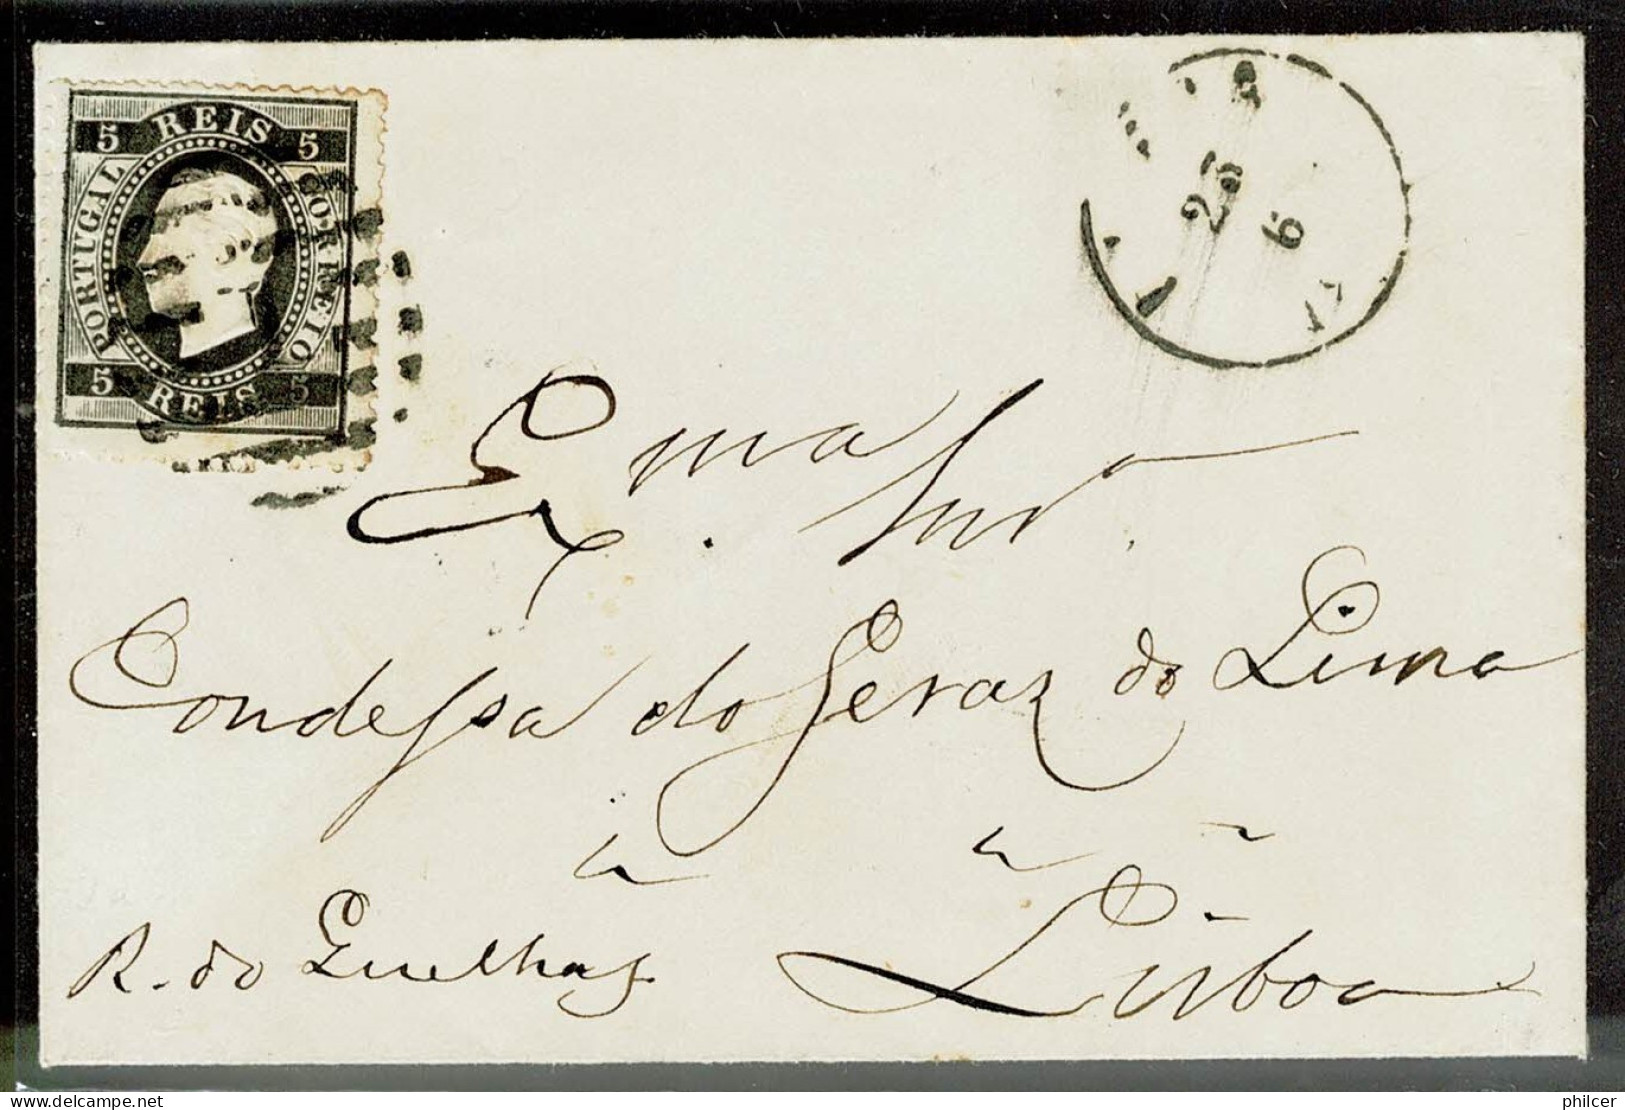 5 REIS 5
PORTUGAL
CORREIO
5 REIS 5
25
6
Exma Snra
Condessa do Geraz do Lima
a
R. do Quelhas
Lisboa
delcampe.net
philcer